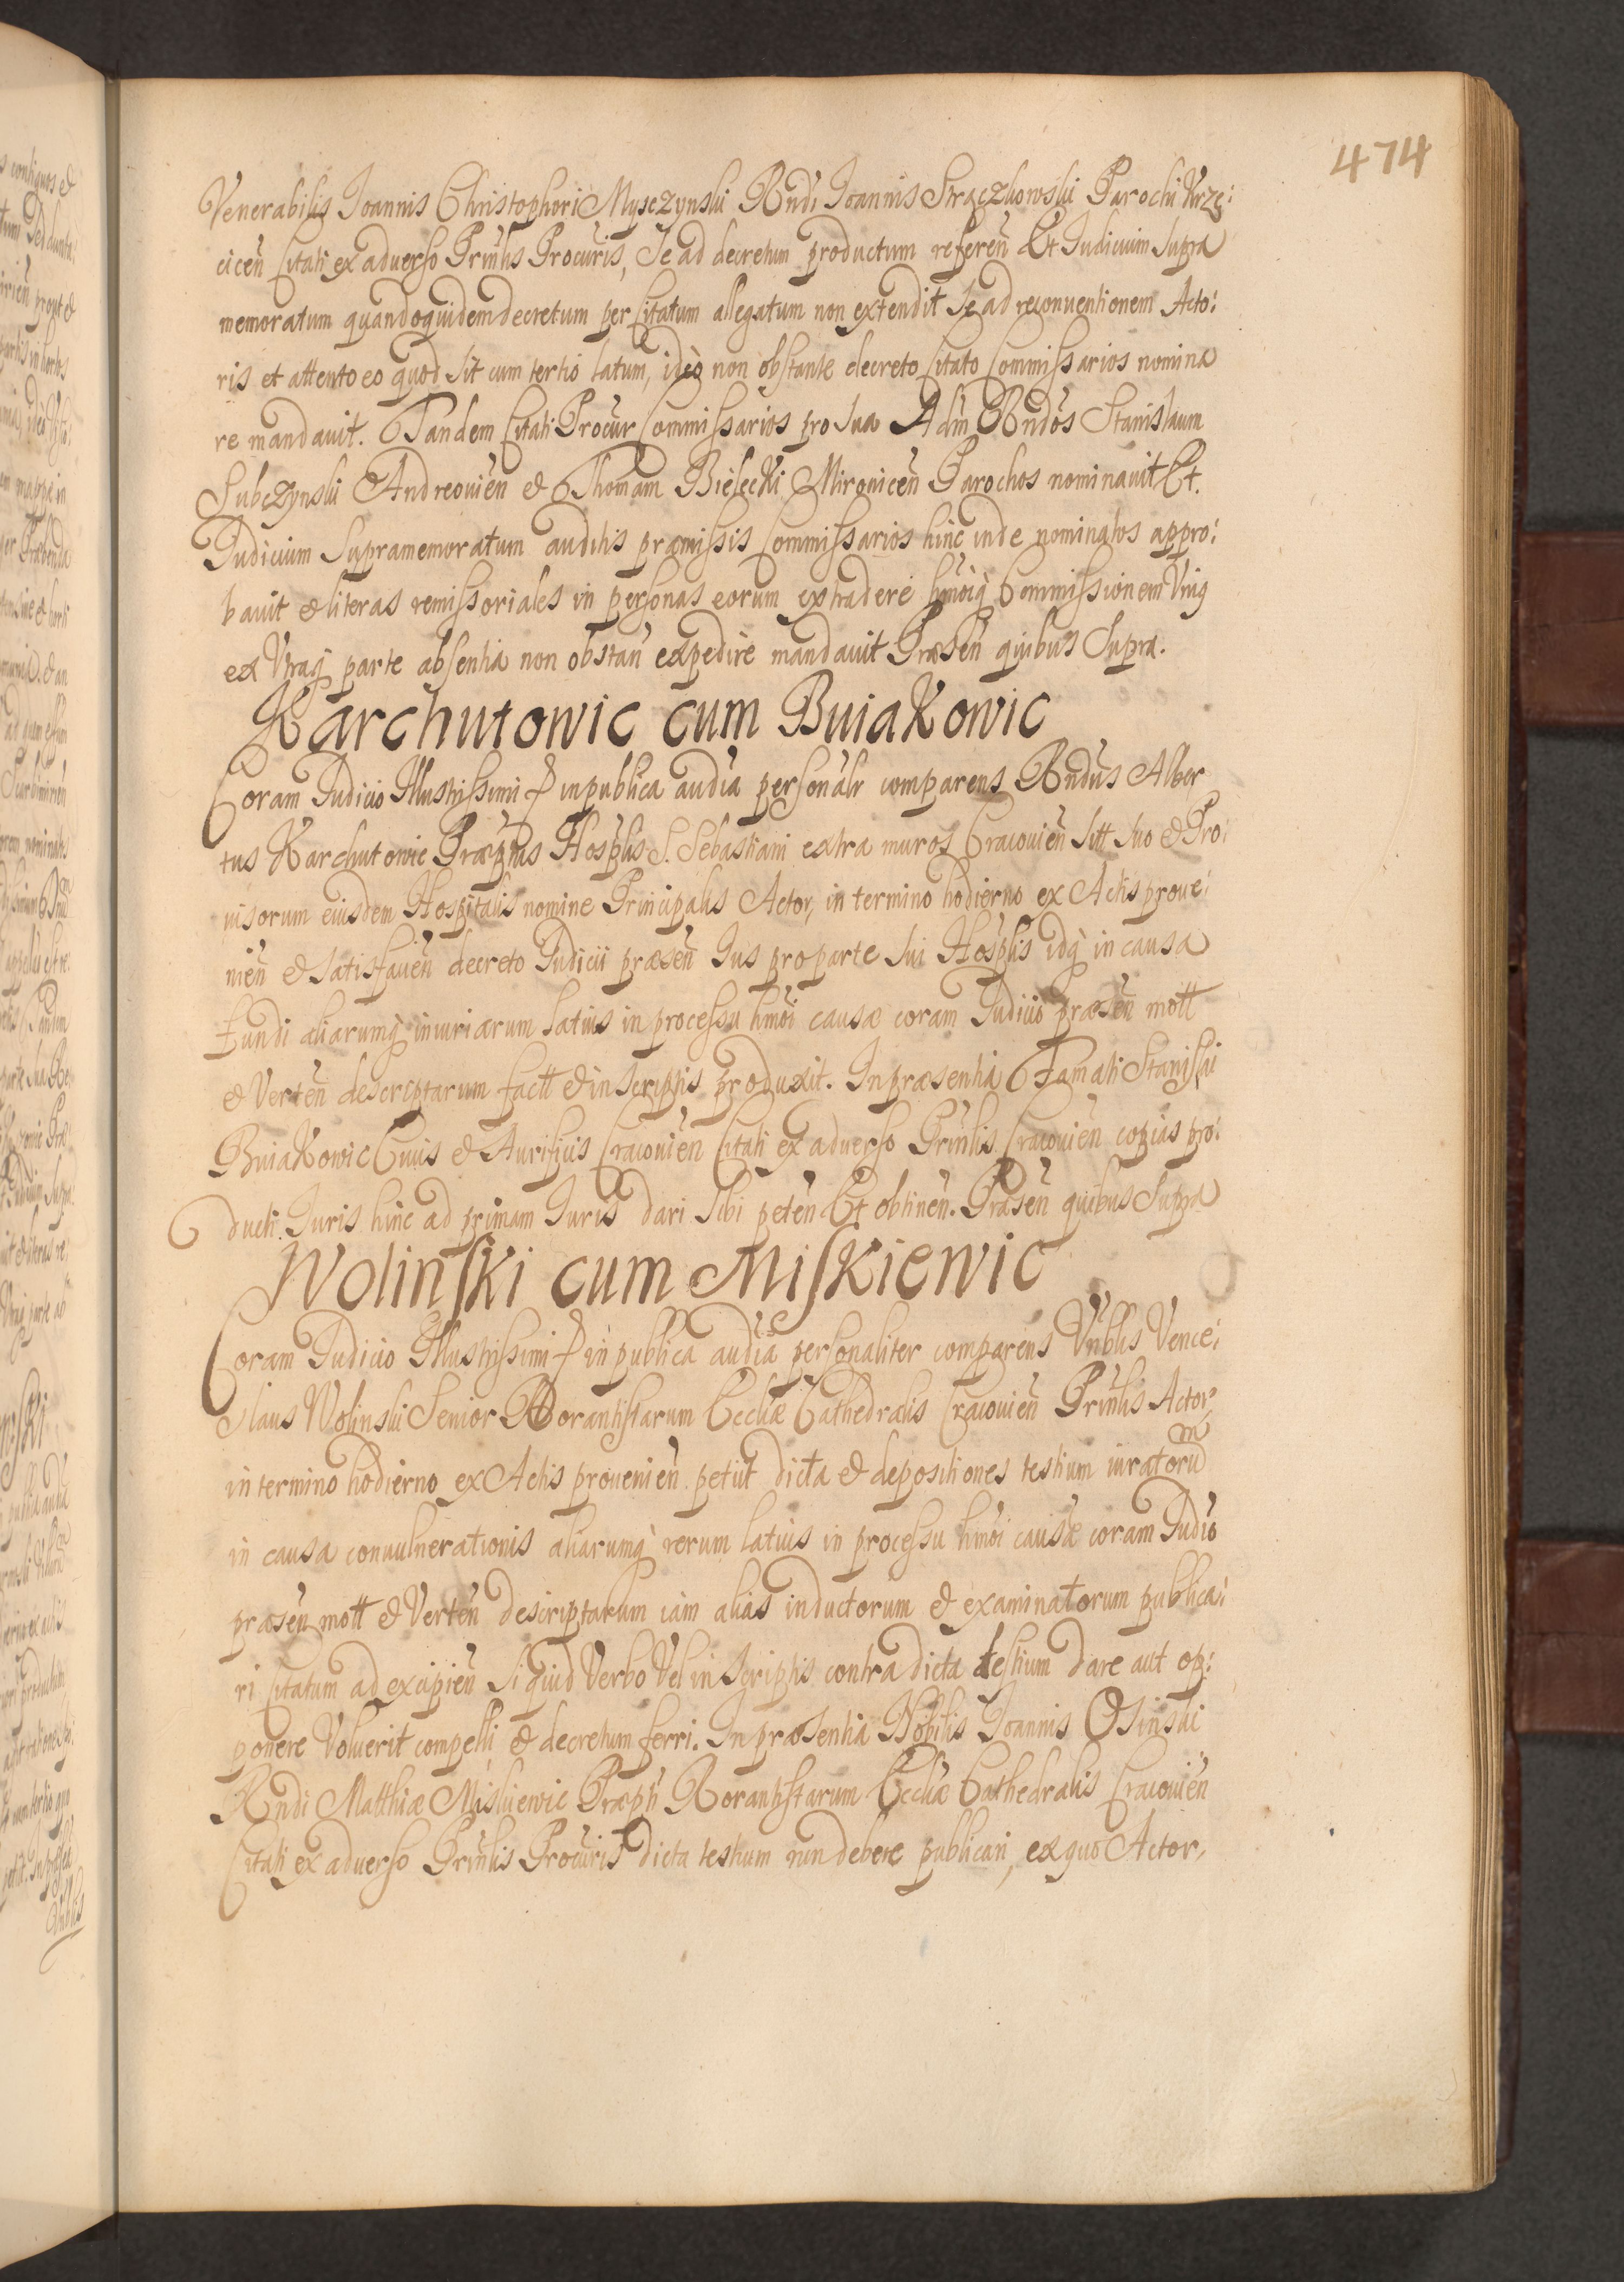 474
Venerabilis Joannis Christophori Mysczynski Rndi Joannis Strączkowski Parochi Krzę:
cicen̄ Citati ex adverso Prinlis Procuris, Se ad decretum productum referen̄ Et Iudicium Supra
memoratum quandoquidem decretum per Citatum allegatum non extendit Se ad reconuentionem Acto:
ris et attento eo quod sit cum tertio latum, ideo non obstante decreto Citato Commissarios nomina
re mandauit. Tandem Citati Procur Commissarios pro sua Adm Rndos Stanislaum
Subczynski Andreouien̄ & Thomam Bielecki Mironicen̄ Parochos nominauit Et.
Iudicium Supramemoratum auditis præmissis Commissarios hinc inde nominatos appro:
bauit & literas remissoriales in personas eorum extradere hmoiq̀ Commissionem Vniq
ex Vtraq̀ parte absentia non obstan̄ expedire mandauit Præsen̄ quibus Supra.
Karchutowic cum Buiakowic
Coram Iudicio Illustrissimi & in publica audia personalr comparens Rndus Alber
tus Karchutowic Præptus Hosplis S. Sebastiani extra muros Cracouien̄ sitt suo & Pro:
uisorum eiusdem Hospitalis nomine Principalis Actor, in termino hodierno ex Actis proue:
nien̄ & satisfacien̄ decreto Iudicii præsen̄ Ius pro parte sui Hosplis idq̀ in causa
Fundi aliarumq̀ iniuriarum latius in processu hmoi causæ coram Iudicio præsen̄ mott
& Verten̄ descriptarum factt & in scriptis produxit. In præsentia Famati Stanislai
Buiakowic Ciuis & Aurificis Cracouien̄ Citati ex aduerso Prinlis Cracouien̄ copias pro:
ducti Iuris hinc ad primam Iuris dari sibi peten̄ Et obtinen̄. Præsen̄ quibus Supra
Wolinski cum Miskiewic
Coram Iudicio Illustrissimi & in publica audia personaliter comparens Vnblis Vence:
slaus Wolinski Senior Rorantistarum Eccliæ Cathedralis Cracouien̄ Prinlis Actor,
in termino hodierno ex Actis prouenien̄ petiit dicta & depositiones testium iuratorum
in causa conuulnerationis aliarumq̀ rerum latius in processu hmoi causæ coram Iudio
præsen̄ mott & Verten̄ descriptarum iam alias inductorum & examinatorum publica:
ri Citatum ad excipien̄ si quid Verbo Vel in Scriptis contra dicta testium dare aut op:
ponere Voluerit compelli & decretum ferri. In præsentia Nobilis Joannis Osinski
Rndi Matthiæ Miskiewic Præpti Rorantistarum Eccliæ Cathedralis Cracouien̄
Citati ex aduerso Prinlis Procuris dicta testium non debere publicari, ex quo Actor,